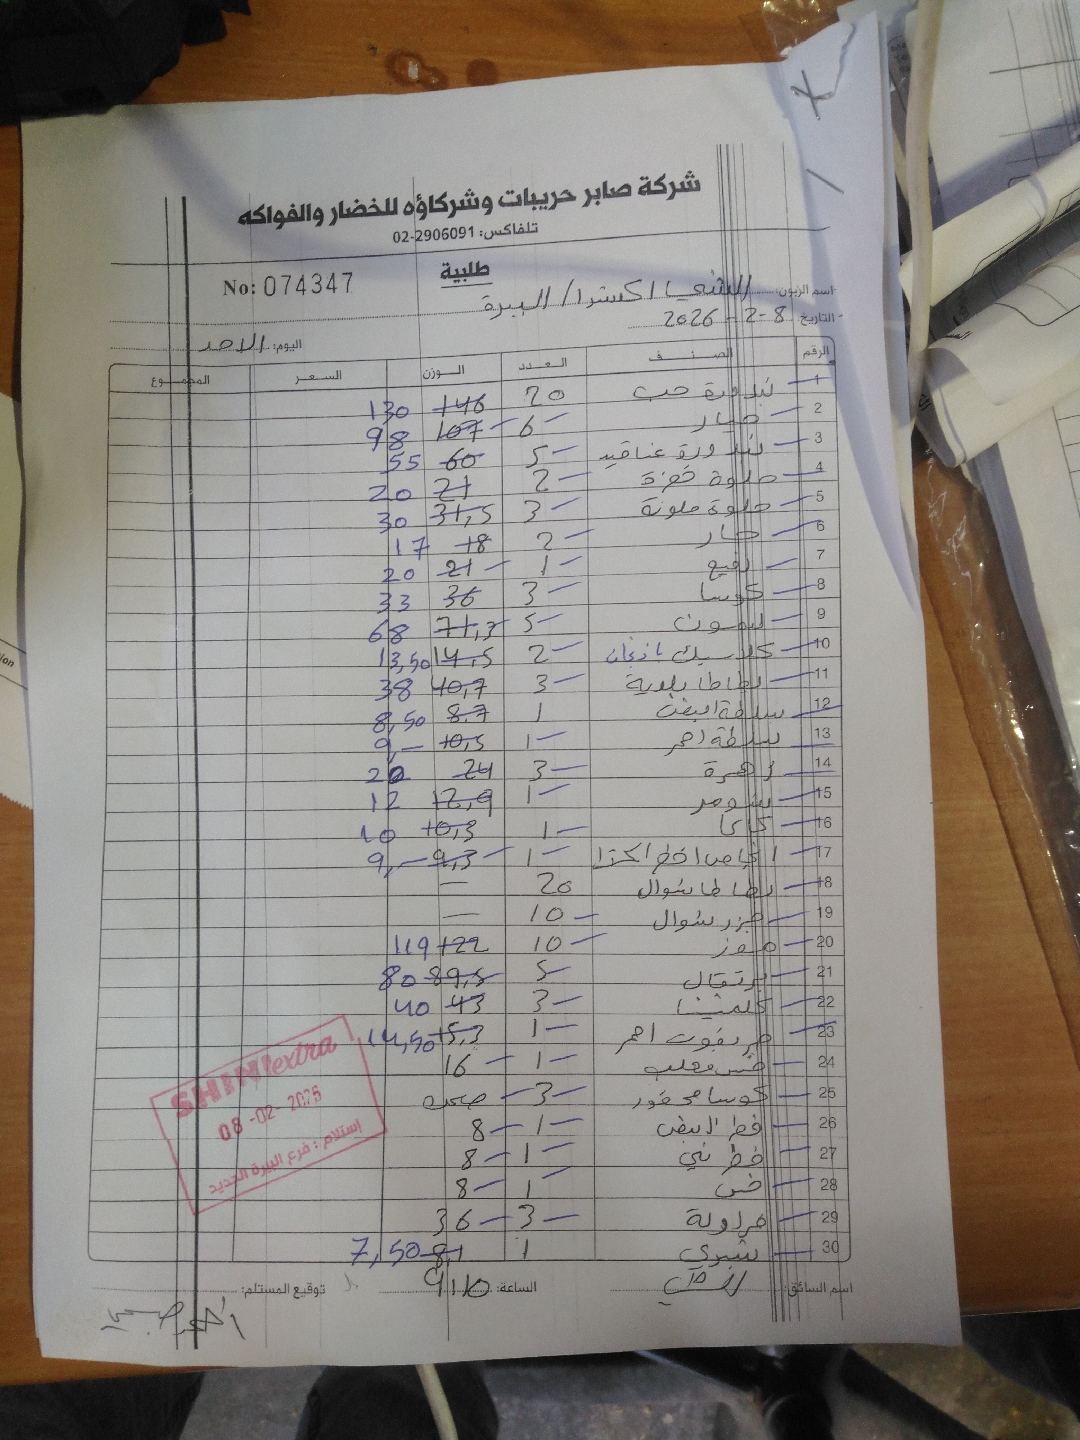 شركة صابر حريبات وشركاؤه للخضار والفواكه
تلفاكس: 02-2906091
طلبية
No: 074347
اسم الزبون: الشني اكسترا / البيرة
التاريخ: 8-2-2026
اليوم: الاحد
الرقم الصنف العدد الوزن السعر المجموع
1 بندورة حب 20 146 130
2 خيار 6 107 98
3 بندورة عناقيد 5 60 55
4 حلوة خمزة 2 21 20
5 حلوة ملونة 3 31,5 30
6 حار 2 18 17
7 رفيع 1 21 20
8 كوسا 3 36 33
9 ليمون 5 71,3 68
10 كلاسيك باذنجان 2 14,5 13,50
11 بطاطا بلدية 3 40,7 38
12 سلطة ابيض 1 8.7 8,50
13 سلطة احمر 1 10,5 9,-
14 زهرة 3 24 20
15 شومر 1 12,9 12
16 كاكا 1 10,3 10
17 اجاص اخضر 1 9,3 9,-
18 بطاطا شوال 20 -
19 جزر شوال 10 -
20 موز 10 122 119
21 برتقال 5 89,5 80
22 كلمنتينا 3 43 40
23 جريفوت احمر 1 15,3 14,50
24 خس معلب 1 16
25 كوسا محفور 3 صحن
26 فطر ابيض 1 8
27 فطر بني 1 8
28 خس 1 8
29 فراولة 3 36
30 1 8,1 7,50
اسم السائق:
الساعة: 9:10
توقيع المستلم:
SHINI extra
08-02-2026
إستلام: فرع البيرة الجديد